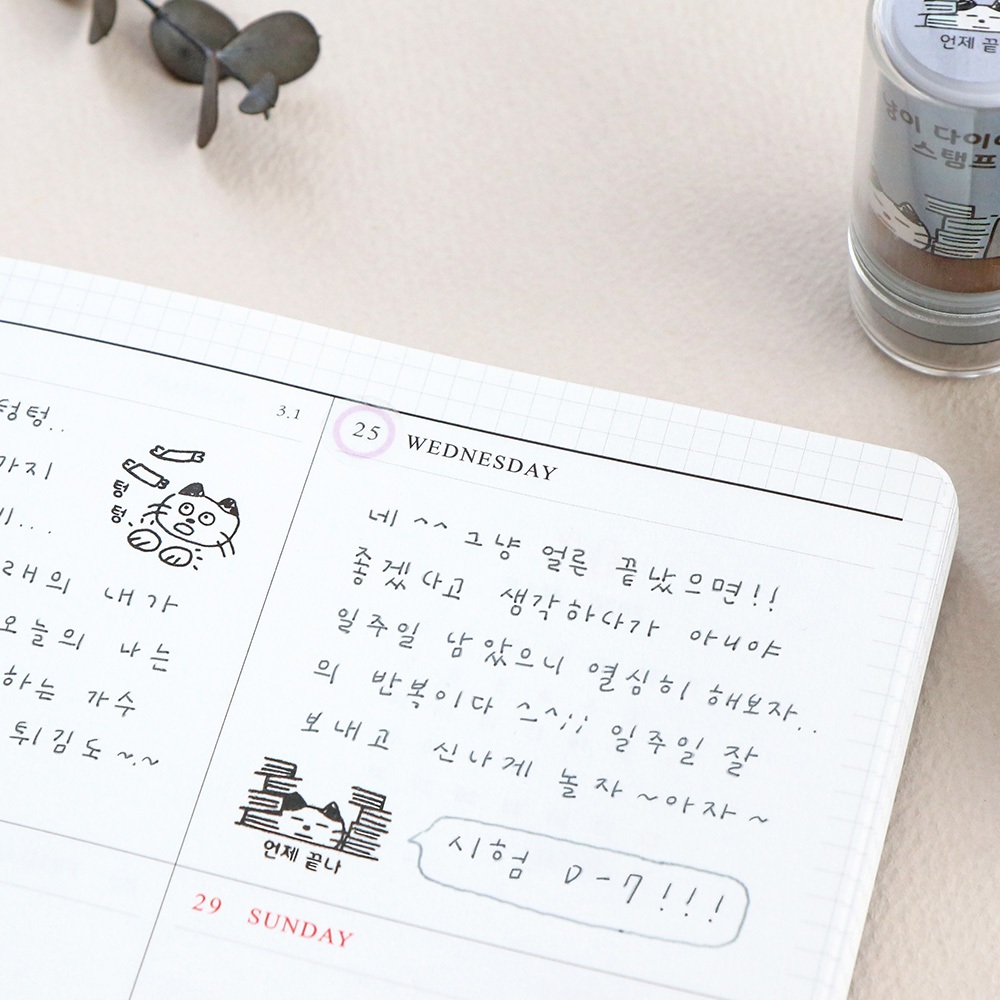 언제 끝
냥이 다이
스탬프
텅텅..
3.1
가지
텅
텅
내가
오늘의 나는
하는 가수
튀김도 ~.~
25 WEDNESDAY
네 ^^ 그냥 얼른 끝났으면!!
좋겠다고 생각하다가 아니야
일주일 남았으니 열심히 해보자..
의 반복이다 ^_^;; 일주일 잘
보내고 신나게 놀자 ~아자 ~
언제 끝나
시험 D-7!!!
29 SUNDAY